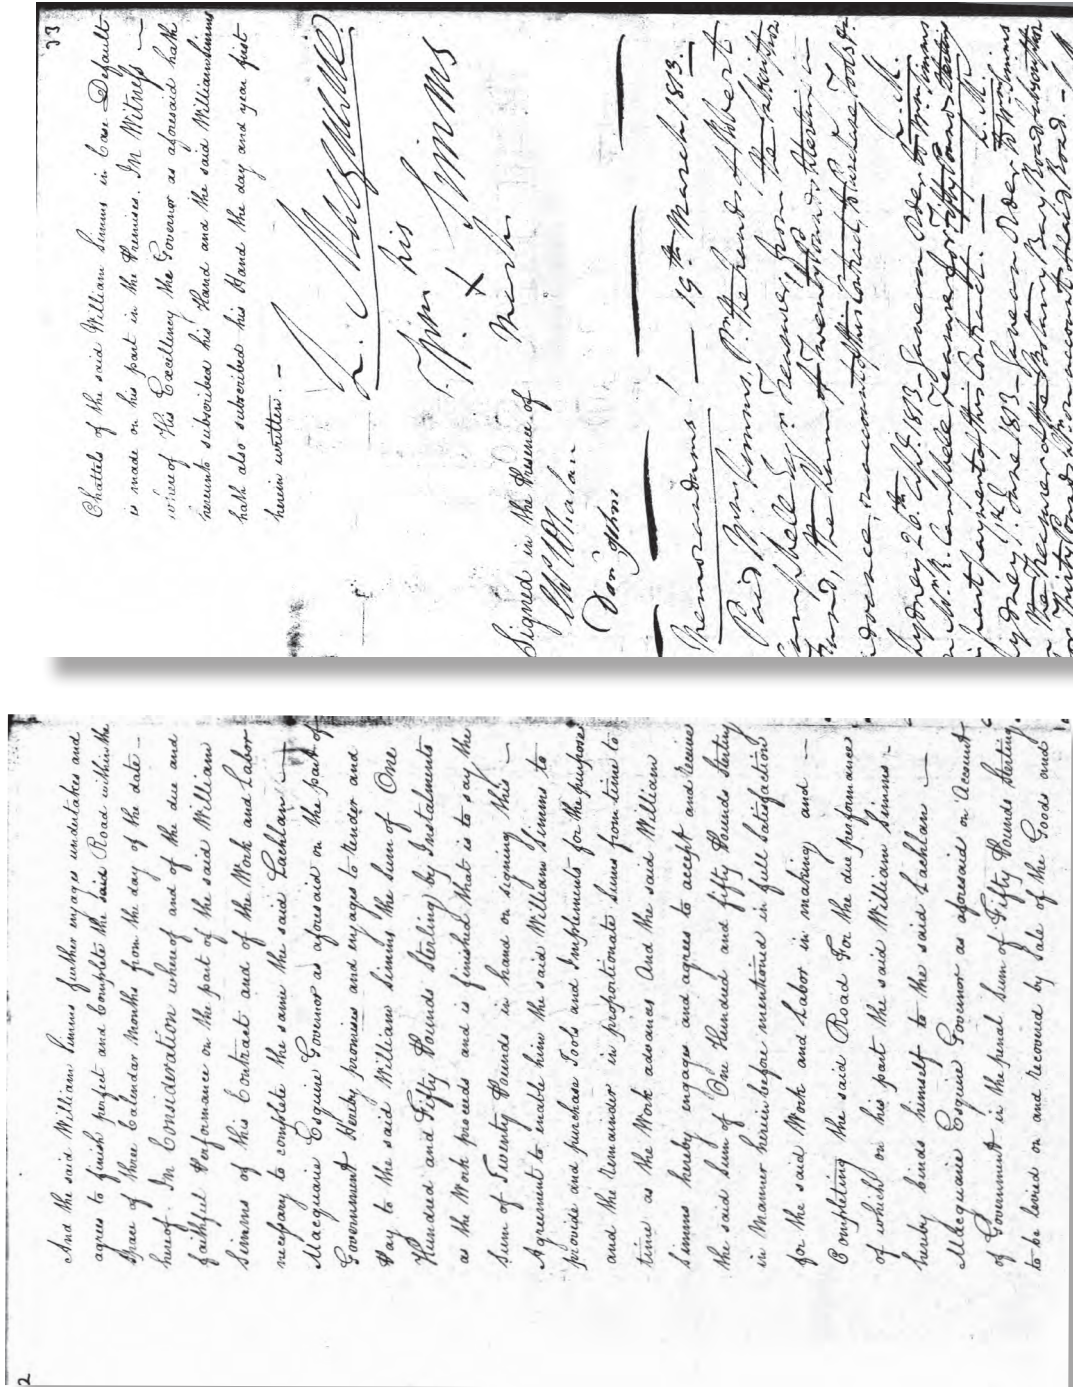 2
And the said William Simms further engages undertakes and
agrees to finish perfect and Complete the said Road within the
space of three Calendar Months from the day of the date —
hereof. In Consideration whereof and of the due and
faithful Performance on the part of the said William
Simms of this Contract and of the Work and Labor
necessary to complete the same the said Lachlan —
Macquarie Esquire Governor as aforesaid on the part of
Government Hereby promises and engages to tender and
Pay to the said William Simms the Sum of One
Hundred and Fifty Pounds Sterling by Instalments
as the Work proceeds and is finished that is to say the
Sum of Twenty Pounds in hand on signing this —
Agreement to enable him the said William Simms to
provide and purchase Tools and Implements for the purpose
and the remainder in proportionate sums from time to
time as the Work advances And the said William
Simms hereby engages and agrees to accept and receive
the said sum of One Hundred and fifty Pounds Sterling
in Manner herein before mentioned in full Satisfaction
for the said Work and Labor in making and —
Completing the said Road For the due performance
of which on his part the said William Simms —
hereby binds himself to the said Lachlan —
Macquarie Esquire Governor as aforesaid on Account
of Government in the penal Sum of Fifty Pounds Sterling
to be levied on and recovered by Sale of the Goods and
23
Chattels of the said William Simms in Case Default
is made on his part in the Premises. In Witness —
where of His Excellency the Governor as aforesaid hath
hereunto subscribed his Hand and the said William Simms
hath also subscribed his Hand the day and year first
herein written. —
L. Macquarie.
his
Wm X Simms
Mark
Signed in the Presence of
Memorandums! — 19th March 1813. —
Paid Wm Simms, Pr. the hands of Robert
Campbell Esqr. Treasurer, from the aboveition
Fund, the Sum of Twenty Pounds Sterling in
advance, on account of this Contract, to purchase Tools &c
L. M.
Sydney 26th Apl. 1813 — Given an Order to Wm. Simms
on Mr. R. Campbell Treasurer for Fifty Pounds Sterling
in part payment of this Contract. —
L. M.
Sydney June 1813 — Given an Order to Wm Simms
on the Treasurer of the Botany Bay Road
for Thirty Pounds Stg. on account of said Road. — L. M.